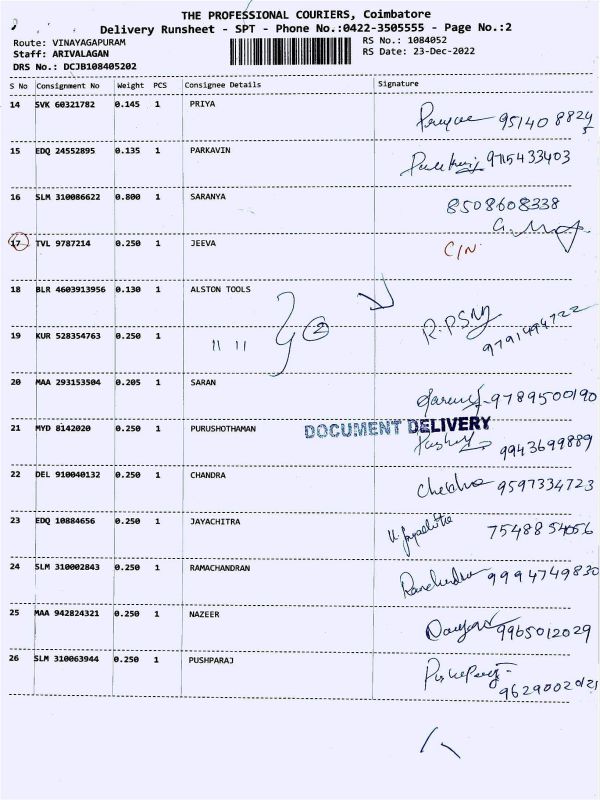 THE PROFESSIONAL COURIERS, Coimbatore
Delivery Runsheet - SPT - Phone No.:0422-3505555 - Page No.:2
Route: VINAYAGAPURAM RS No.: 1084052
Staff: ARIVALAGAN RS Date: 23-Dec-2022
DRS No.: DCJB108405202
S No Consignment No Weight PCS Consignee Details Signature
14 SVK 60321782 0.145 1 PRIYA
15 EDQ 24552895 0.135 1 PARKAVIN 9715433403
16 SLM 310086622 0.800 1 SARANYA 8508608338
17 TVL 9787214 0.250 1 JEEVA C/N
18 BLR 4603913956 0.130 1 ALSTON TOOLS
19 KUR 528354763 0.250 1 " " 2 R.PSNY 9791494722
20 MAA 293153504 0.205 1 SARAN 9789500190
21 MYD 8142020 0.250 1 PURUSHOTHAMAN 9943699889
DOCUMENT DELIVERY
22 DEL 910040132 0.250 1 CHANDRA 9597334723
23 EDQ 10884656 0.250 1 JAYACHITRA 7548854056
24 SLM 310002843 0.250 1 RAMACHANDRAN 9994749830
25 MAA 942824321 0.250 1 NAZEER 9965012029
26 SLM 310063944 0.250 1 PUSHPARAJ 96290020121